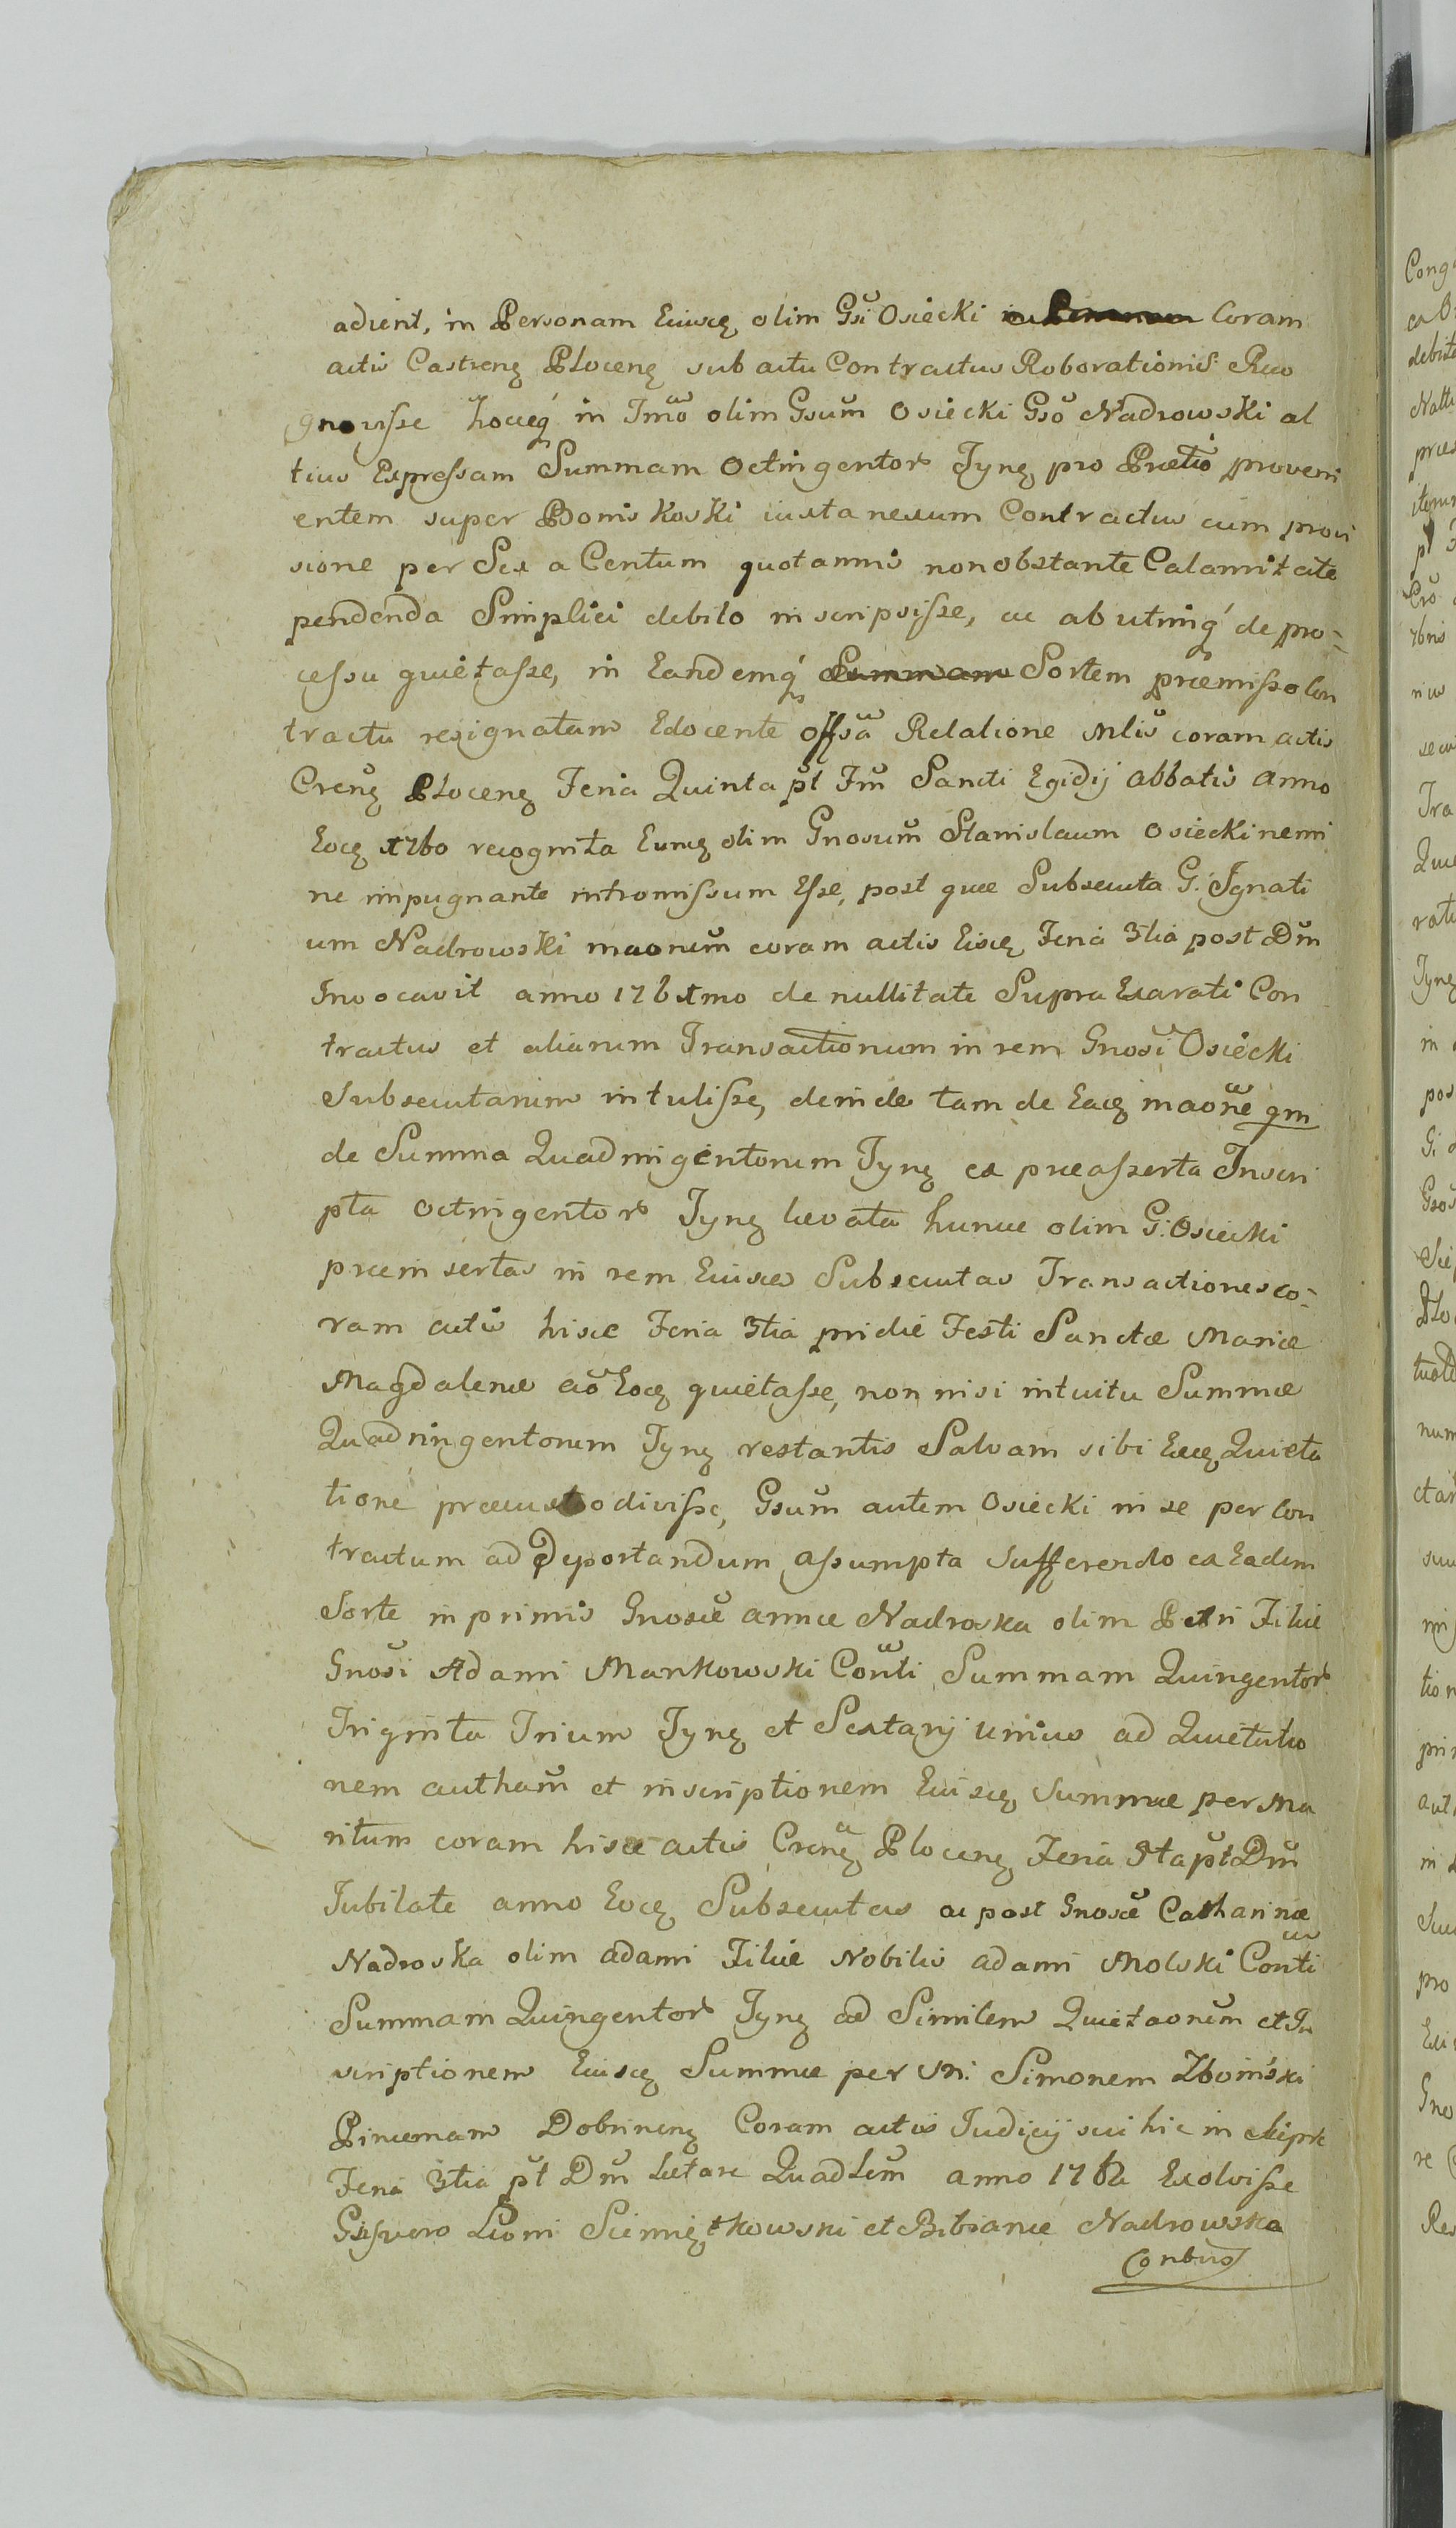 adient, in Personam Eiusdę olim Gsi Osiecki Coram
actis Castrenę Plocenę sub actu Contractus Roborationis Reco
gnovisse hocceq́ in Imo olim Gsum Osiecki Gso Nadrowski al
tius Expressam Summam Octingentor Tynę pro Pretio proveni
entem super Bonis Koski iuxta nexum Contractus cum provi
sione per Sex a Centum quotannis non obstante Calamitate
pendenda Simplici debito inscripsisse, ac ab utrinq́ de pro-
cessu quietasse, in Eandemq́ Summam Sortem præmisso Con
tractu resignatam Edocente offsa Relatione Mlis coram actis
Crenę Plocenę Feria Quinta pt Fm Sancti Egidij abbatis anno
Eocę 1760 recognita Eumcę olim Gnosum Stanislaum Osiecki nemi
ne impugnante intromissum Esse, post quæ Subsecuta G. Ignati
um Nadrowski maonem coram actis Eiscę Feria 3tia post Dm
Invocavit anno 1761mo de nullitate Supra Exarati Con
tractus et aliarum Transactionum in rem Gnosi Osiecki
Subsecutarum intulisse, deinde tam de Eacę maone qm
de Summa Quadringentorum Tynę ex præasserta Inscri
pta Octingentor Tynę levata hunce olim G: Osiecki
præinsertas in rem Eiusce Subsecutas Transactiones co-
ram actis hisce Feria 3tia pridie Festi Sanctæ Mariæ
Magdalenæ ao Eocę quietasse, non nisi intuitu Summæ
Quadringentorum Tynę restantis Salvam sibi Eacę Quieta
tione præcustodivisse, Gsum autem Osiecki in se per Con
tractum ad Deportandum assumpta Sufferendo ex Eadem
Sorte in primis Gnosæ annæ Nadroska olim Petri Filiæ
Gnosi Adami Mankowski Conti Summam Quingentor
Triginta Trium Tynę et Sextarij unius ad Quietatio
nem autham et inscriptionem Eiuscę Summæ per Ma
ritum coram hisce actis Crenę Plocenę Feria 3ta pt Dm
Jubilate anno Eocę Subsecutas ac post Gnosæ Catharinæ
Nadroska olim adami Filiæ Nobilis adami Molski Conti
Summam Quingentor Tynę ad Similem Quietaonem et In
scriptionem Eiuscę Summæ per M: Simonem Zboinski
Pincernam Dobrinenę Coram actis Judicij sui hic in
Feria 3tia pt Dm Lætare Quadlem anno 1762 Exolvisse
Gsis vero Leoni Siemiętkowski et Bibianæ Nadrowska
Conbus